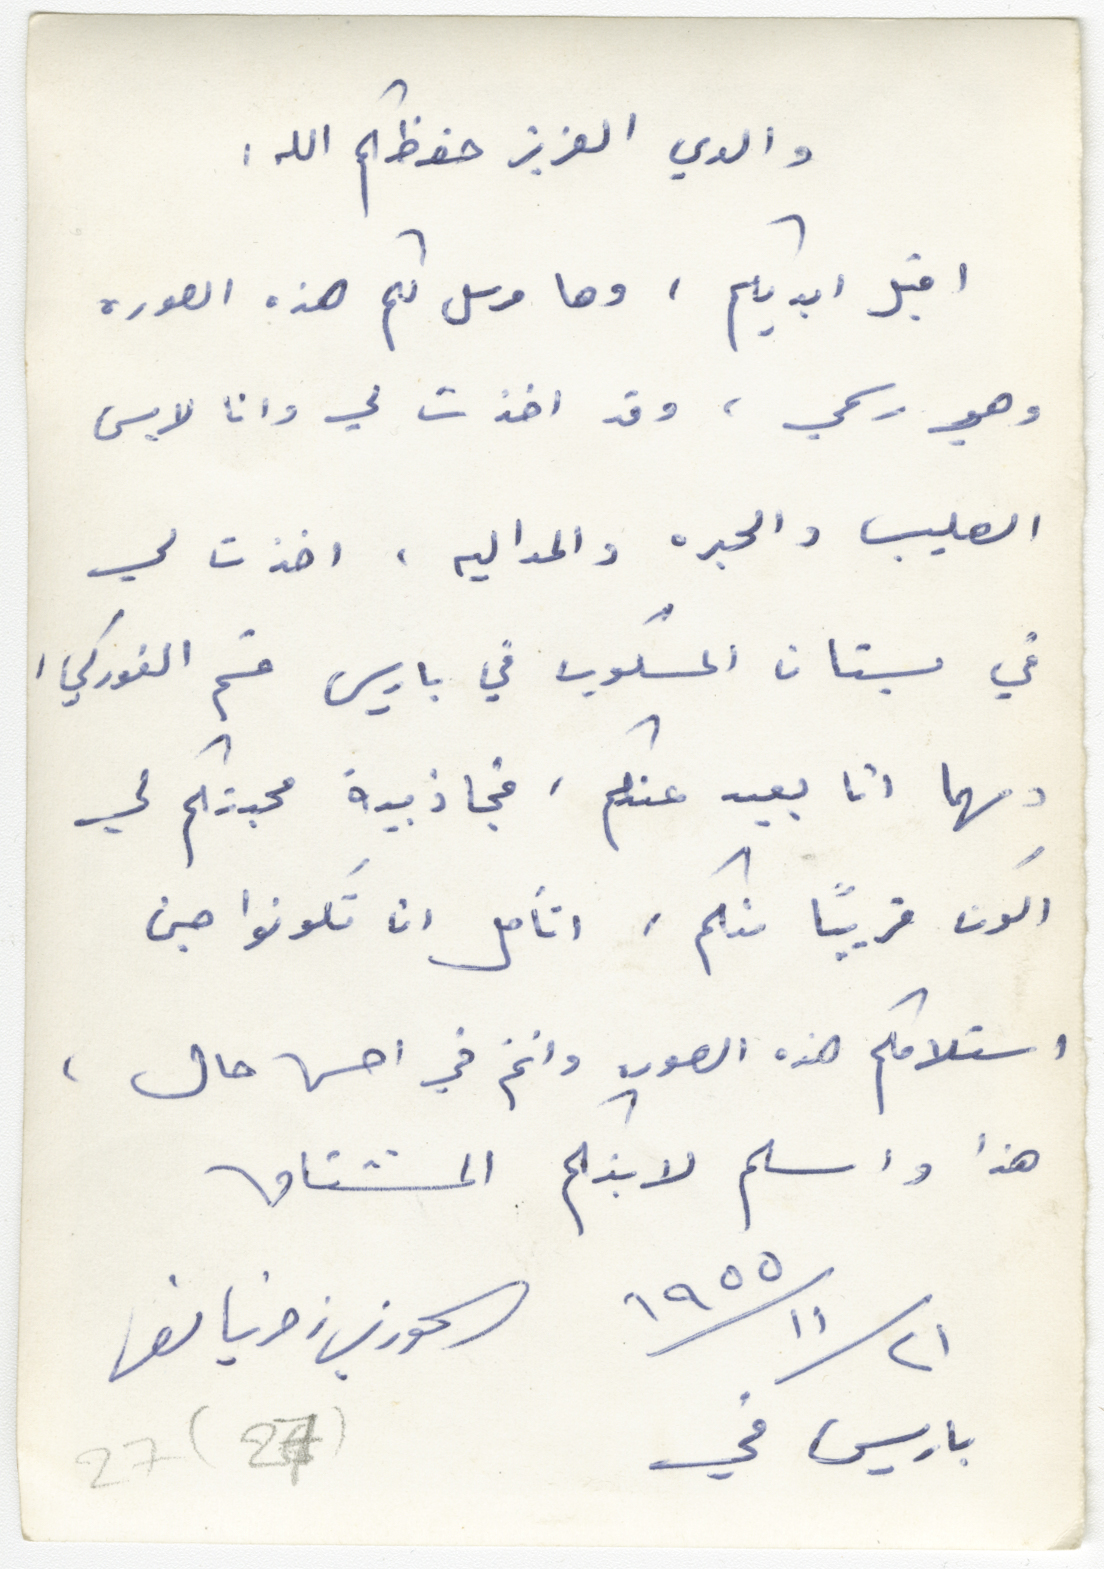 والدي العزيز حفظكم الله ،
اقبل ايديكم ، وها مرسل لكم هذه الصوره
وهي رسمي ، وقد اخذت لي وانا لابس
الصليب والحبره والمداليه ، اخذت لي
في بستان المسكوب في باريس
مهما انا بعيد عنكم ، فجاذبية محبتكم لي
اكون قريبًا منكم ، اتأمل ان تكونوا حين
استلامكم هذه الصوره وانتم في احسن حال ،
هذا واسلم لابنكم المشتاق
٢١/١١/١٩٥٥ الخوري
باريس في
27 (27)